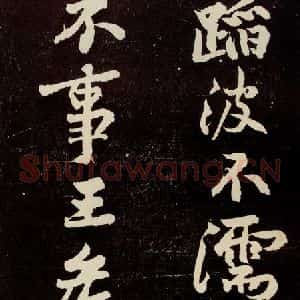 蹈波不濡
不事王
Shufawang.CN